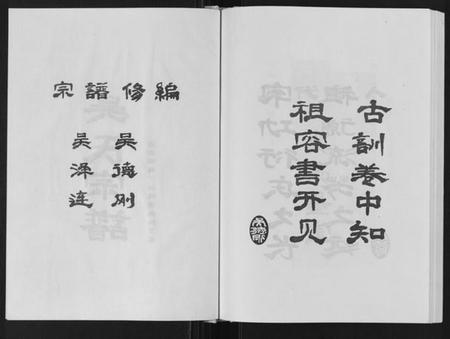 古訓卷中知
祖容書开见
編修譜宗
吴德刚
吴泽连